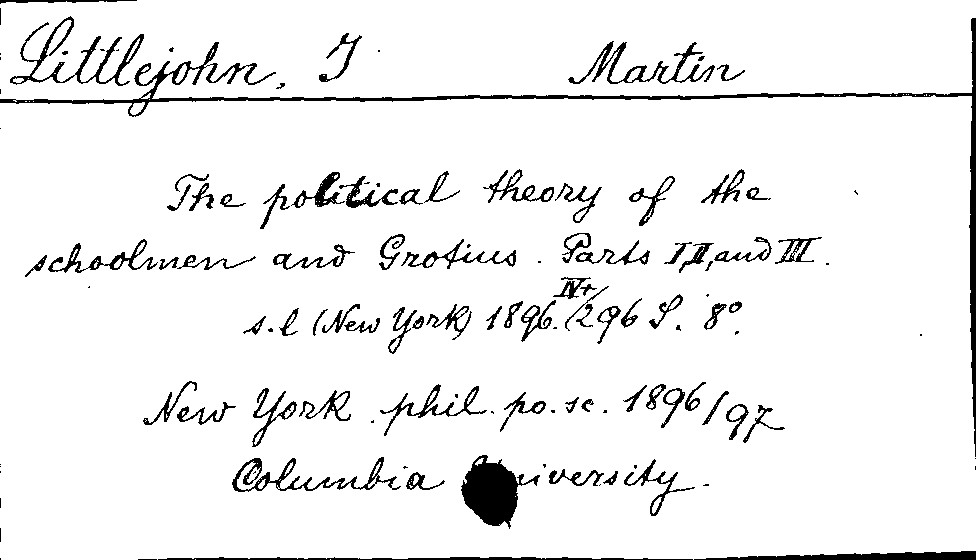 Littlejohn, J Martin
The political theory of the
schoolmen and Grotius. Parts I, II, and III.
IV+
s.l (New York) 1896. 296 S. 8°.
New York. phil. po. sc. 1896/97
Columbia University.